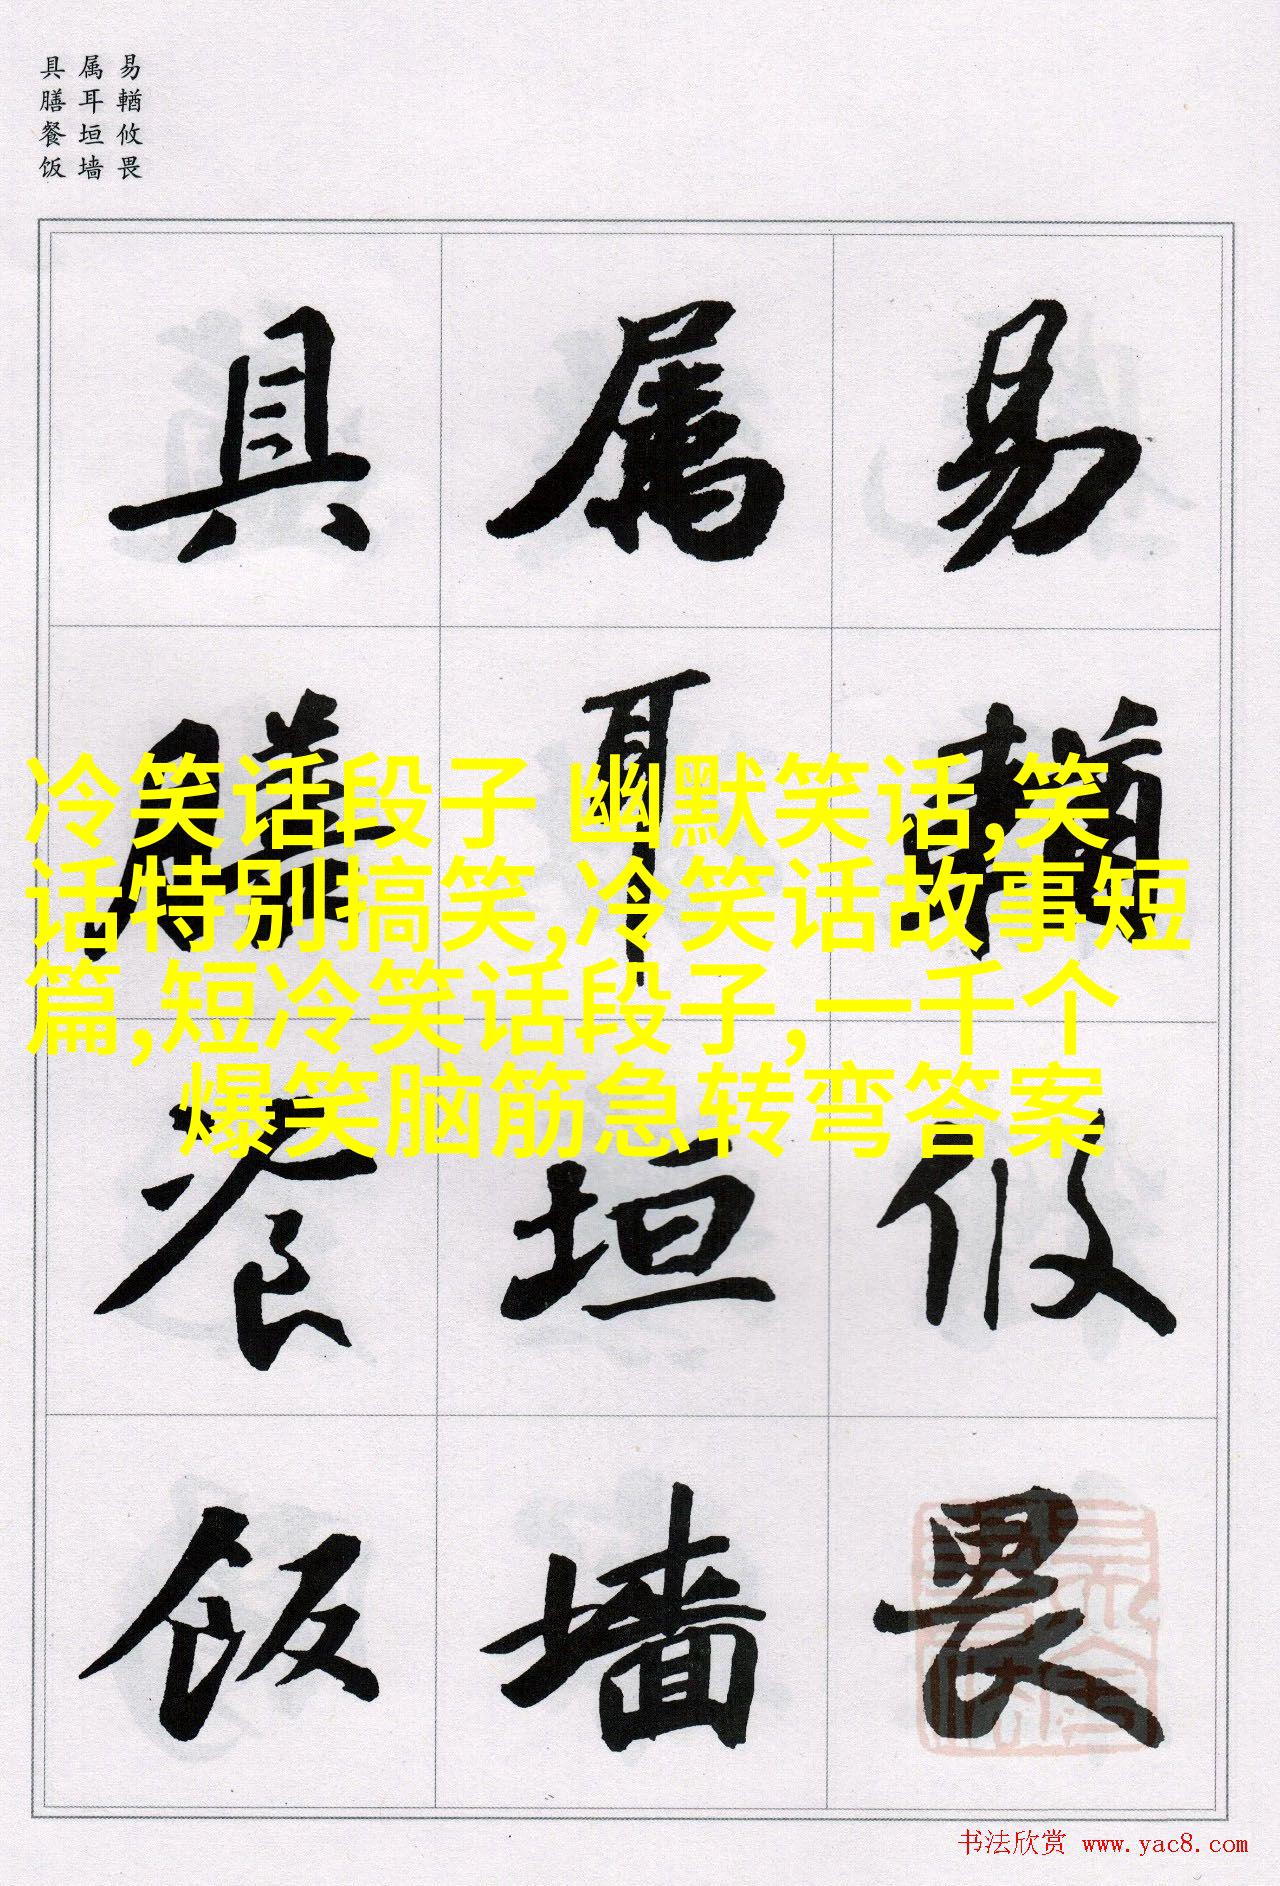 易輶攸畏
属耳垣墙
具膳餐饭
易輶攸畏
属耳垣墙
具膳餐饭
冷笑话段子 幽默笑话,笑
话特别搞笑,冷笑话故事短
篇,短冷笑话段子,一千个
爆笑脑筋急转弯答案
书法欣赏 www.yac8.com